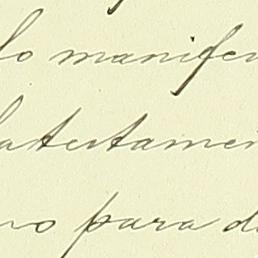 lo manifes
atestamen
no para d